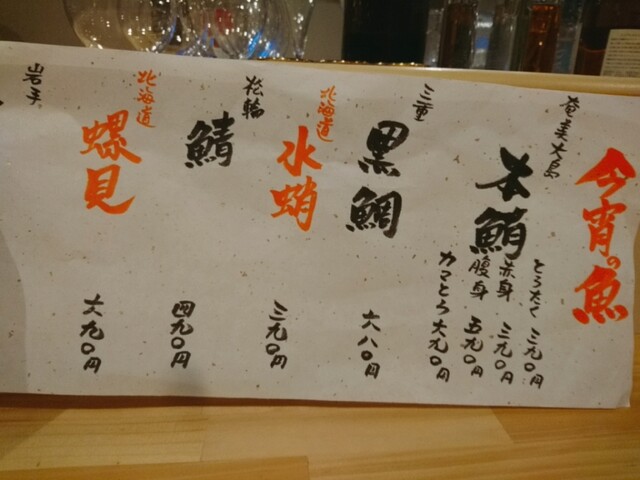 今宵の魚
奄美大島
本鮪
とろたく 三九〇円
赤身 三九〇円
腹身 五九〇円
カマとろ 六九〇円
三重
黒鯛
六八〇円
北海道
水蛸
三九〇円
松輪
鯖
四九〇円
北海道
螺貝
六九〇円
岩手